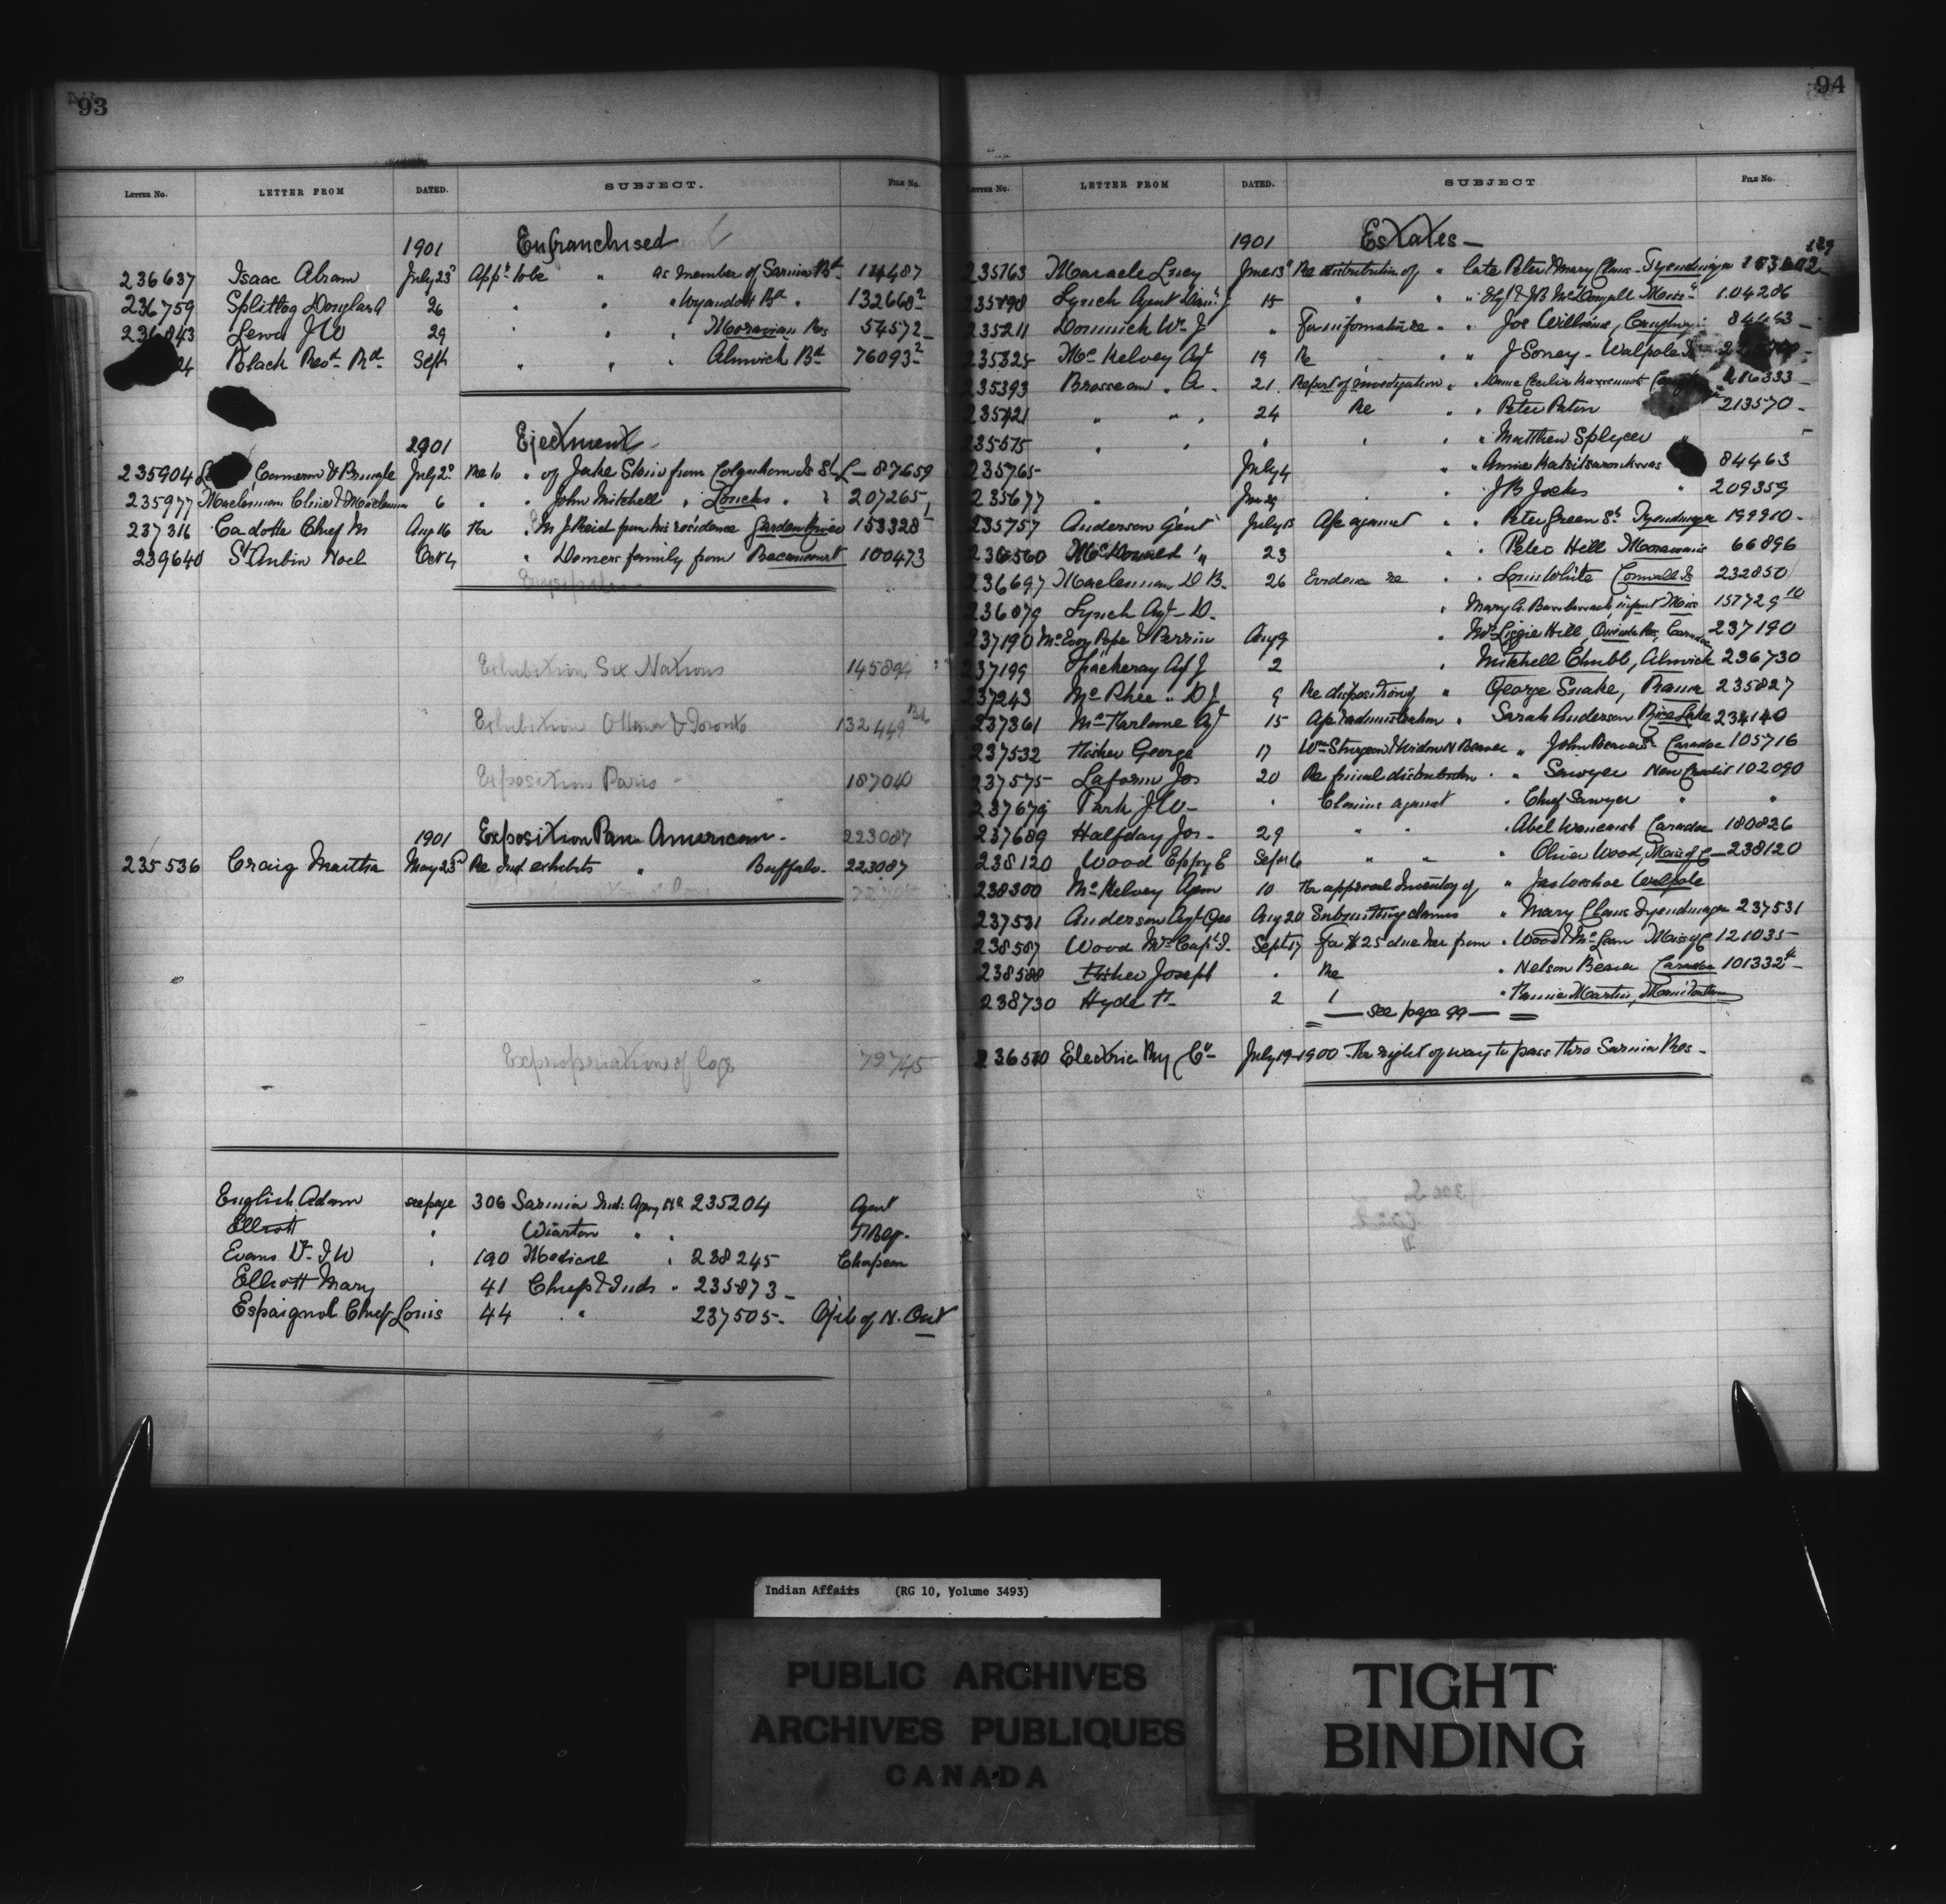 93
LETTER No. LETTER FROM DATED. SUBJECT. FILE No.
1901 Enfranchised
236637 Isaac Abram July 23d Appn to be " as member of Sarnia Bd 114487
236759 Splitlog Douglas A 26 " " Wyandott Bd " 132668²
236843 Lewis J W 29 " " Moravian Res 54572
24 Black Revd Rd Sept " " " Alnwick Bd 76093²
1901 Ejectment
235904 Cameron & Pringle July 2d Re to " of Jake Stevie from Colquhoun Is St L- 87659
235977 Maclennan Cline & Maclennan 6 " " John Mitchell " Loucks " " 207265
237316 Cadotte Chief M Aug 16 For " M J Reid from his residence Garden River 153328
239640 St Aubin Noel Oct 4 " Demers family from Becancourt 100473
Exhibition Six Nations 145894
Exhibition Ottawa & Toronto 132449
Exposition Paris - 187040
1901 Exposition Pan American - 223087
235536 Craig Martha May 23d Re Ind. exhibits " Buffalo. 223087
Expropriation of 79745
English Adam see page 306 Sarnia Ind. Agency 235204 Agent
Elliott " Wiarton " "
Evans Dr J W " 190 Medical " 238245 Chapeau
Elliott Mary 41 Chiefs & Inds " 235873 -
Espaignol Chief Louis 44 " 237505- Ojib of N. Ont
94
LETTER No. LETTER FROM DATED. SUBJECT FILE No.
1901 Estates -
235163 Maracle Lucy June 13d Re distribution of " late Peter & Mary Claus - Tyendinaga
235198 Lynch Agent 15 " " " & J B McDougall 104286
235211 Dominick Wm J " For information re " " Jos Williams, 84463 -
235325 McKelvey Agt 19 Re " " J Soney - Walpole
235393 Brosseau " A. 21 Report of investigation " " Dame Cecilia 216333 -
235421 " " " 24 Re " " Peter 213570 -
235575 " " " " " Matthew Splycer "
235765 July 4 " " Annie 84463
235677 " June 29 " " J B Jocks " 209359
235757 Anderson Geo July 13 " against " " Peter Green Sr Tyendinaga 199910 -
236560 McDonald " 23 " " Peter Hill Moravian 66896
236697 Maclennan D B. 26 Evidence re " " Louis White Cornwall Is 232850
236879 Lynch Agt - D. " Mary A. infant 157729¹⁰
237190 McEvoy Pope & Perrin Aug 9 " Mrs Lizzie Hill, Oneida Res, 237190
237199 Thackeray Agt J 2 " Mitchell Chubb, Alnwick 236730
237243 McPhee " D J 9 Re disposition of " George Snake, Rama 235827
237361 McFarlane Agt 15 administration " Sarah Anderson Rice Lake 234140
237532 Fisher George 17 Wm Sturgeon & Widow N Beaver " John Beaver's Caradoc 105716
237575 Laform Jos 20 Re final distribution " " Sawyer New Credit 102090
237679 Park J W - " Claims against " Chief Sawyer " "
237689 Halfday Jos - 29 " " " Abel Caradoc 180826
238120 Wood Eppy E Sept 6 " " " Oliver Wood, Miss of C - 238120
238300 McKelvey Agen 10 For approval Inventory of " Walpole
237531 Anderson Agt Geo Aug 20 Submitting claims " Mary Claus Tyendinaga 237531
238587 Wood Mrs Capt J. Sept 17 For $25 due her from " Wood Miss of C 121035-
238588 Fisher Joseph " Re " Nelson Beaver Caradoc 101332⁴ -
238730 Hyde 2 " " Fannie Martin,
— see page 99 —
236510 Electric Ry Co - July 19-1900 - For right of way to pass thro Sarnia Res -
Indian Affairs (RG 10, Volume 3493)
PUBLIC ARCHIVES
ARCHIVES PUBLIQUES
CANADA
TIGHT
BINDING